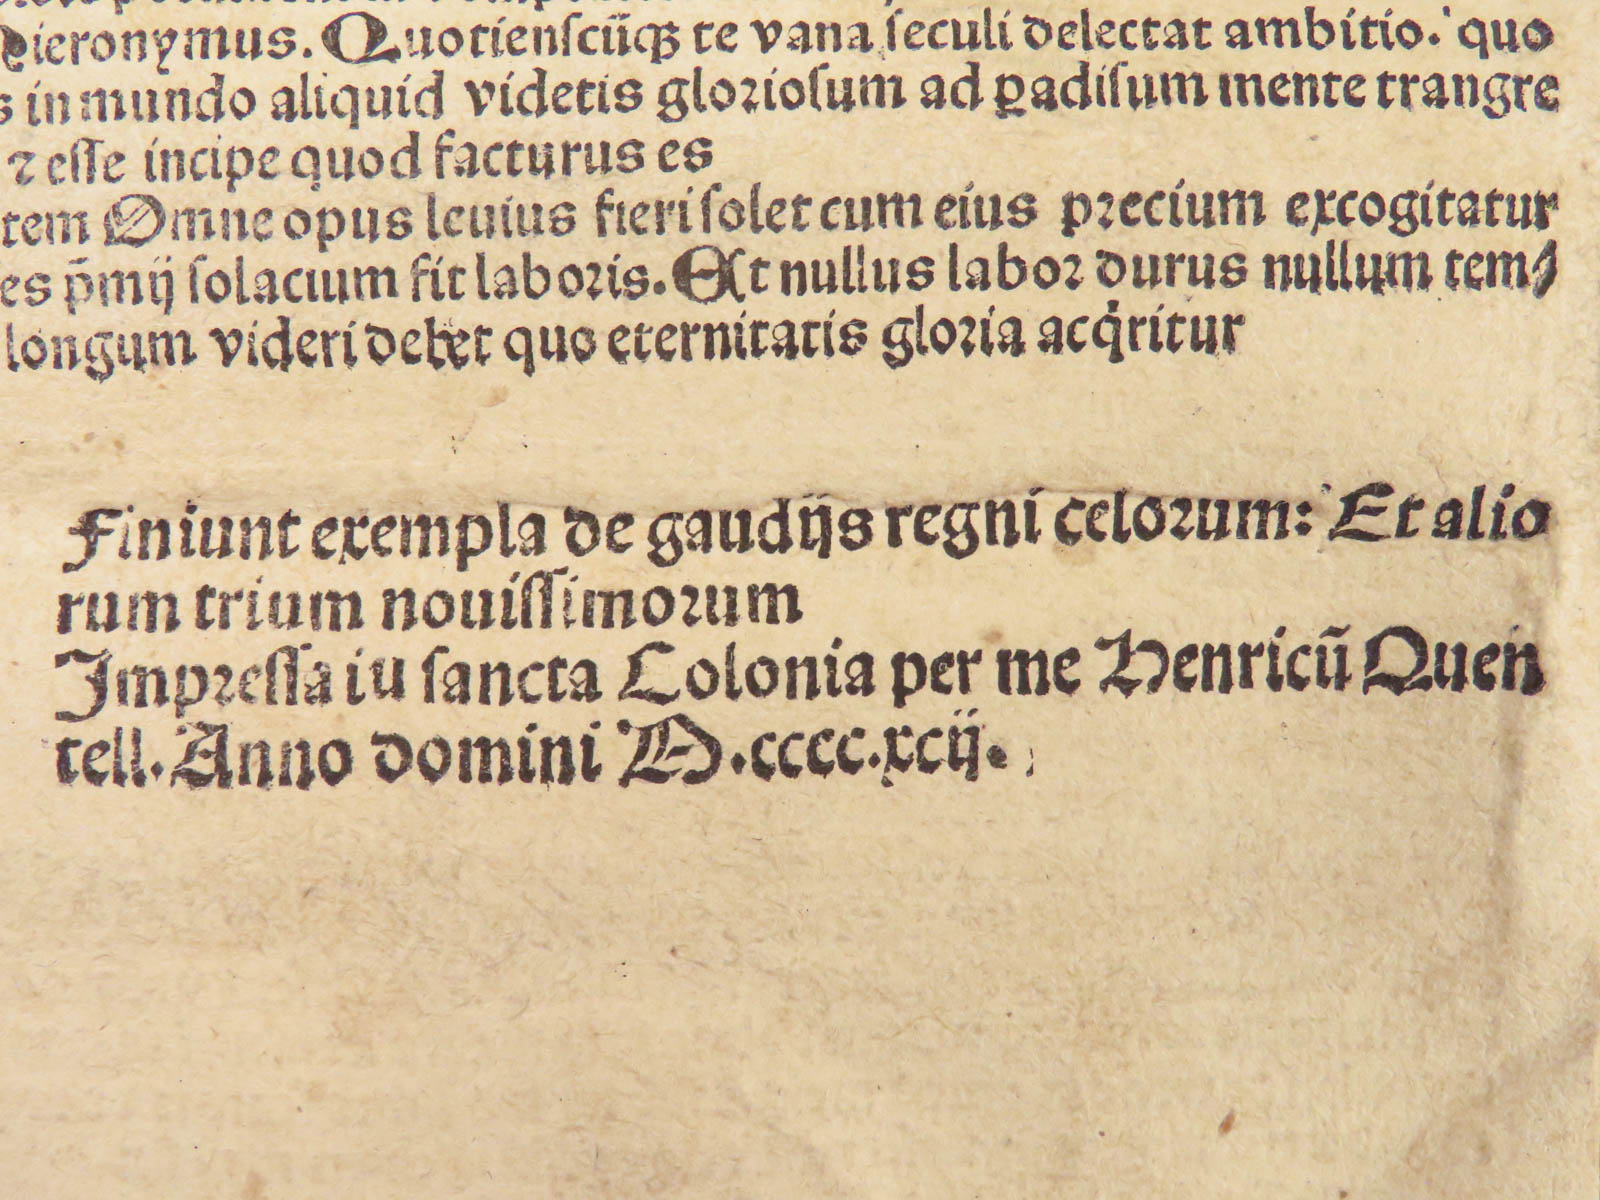 Hieronymus. Quotienſcūqꝫ te vana ſeculi delectat ambitio: quo
s in mundo aliquid videtis glorioſum ad ꝑadiſum mente trangre
⁊ eſſe incipe quod facturus es
tem Omne opus leuius fieri ſolet cum eius precium excogitatur
es p̄mij ſolacium fit laboris. Eſt nullus labor durus nullum temꝰ
longum videri debet quo eternitatis gloria acq̇ritur
Finiunt exempla de gaudijs regni celorum: Et alio
rum trium nouiſſimorum
Impreſſa iu ſancta Colonia per me Henricū Quen
tell. Anno domini M.cccc.xcij.